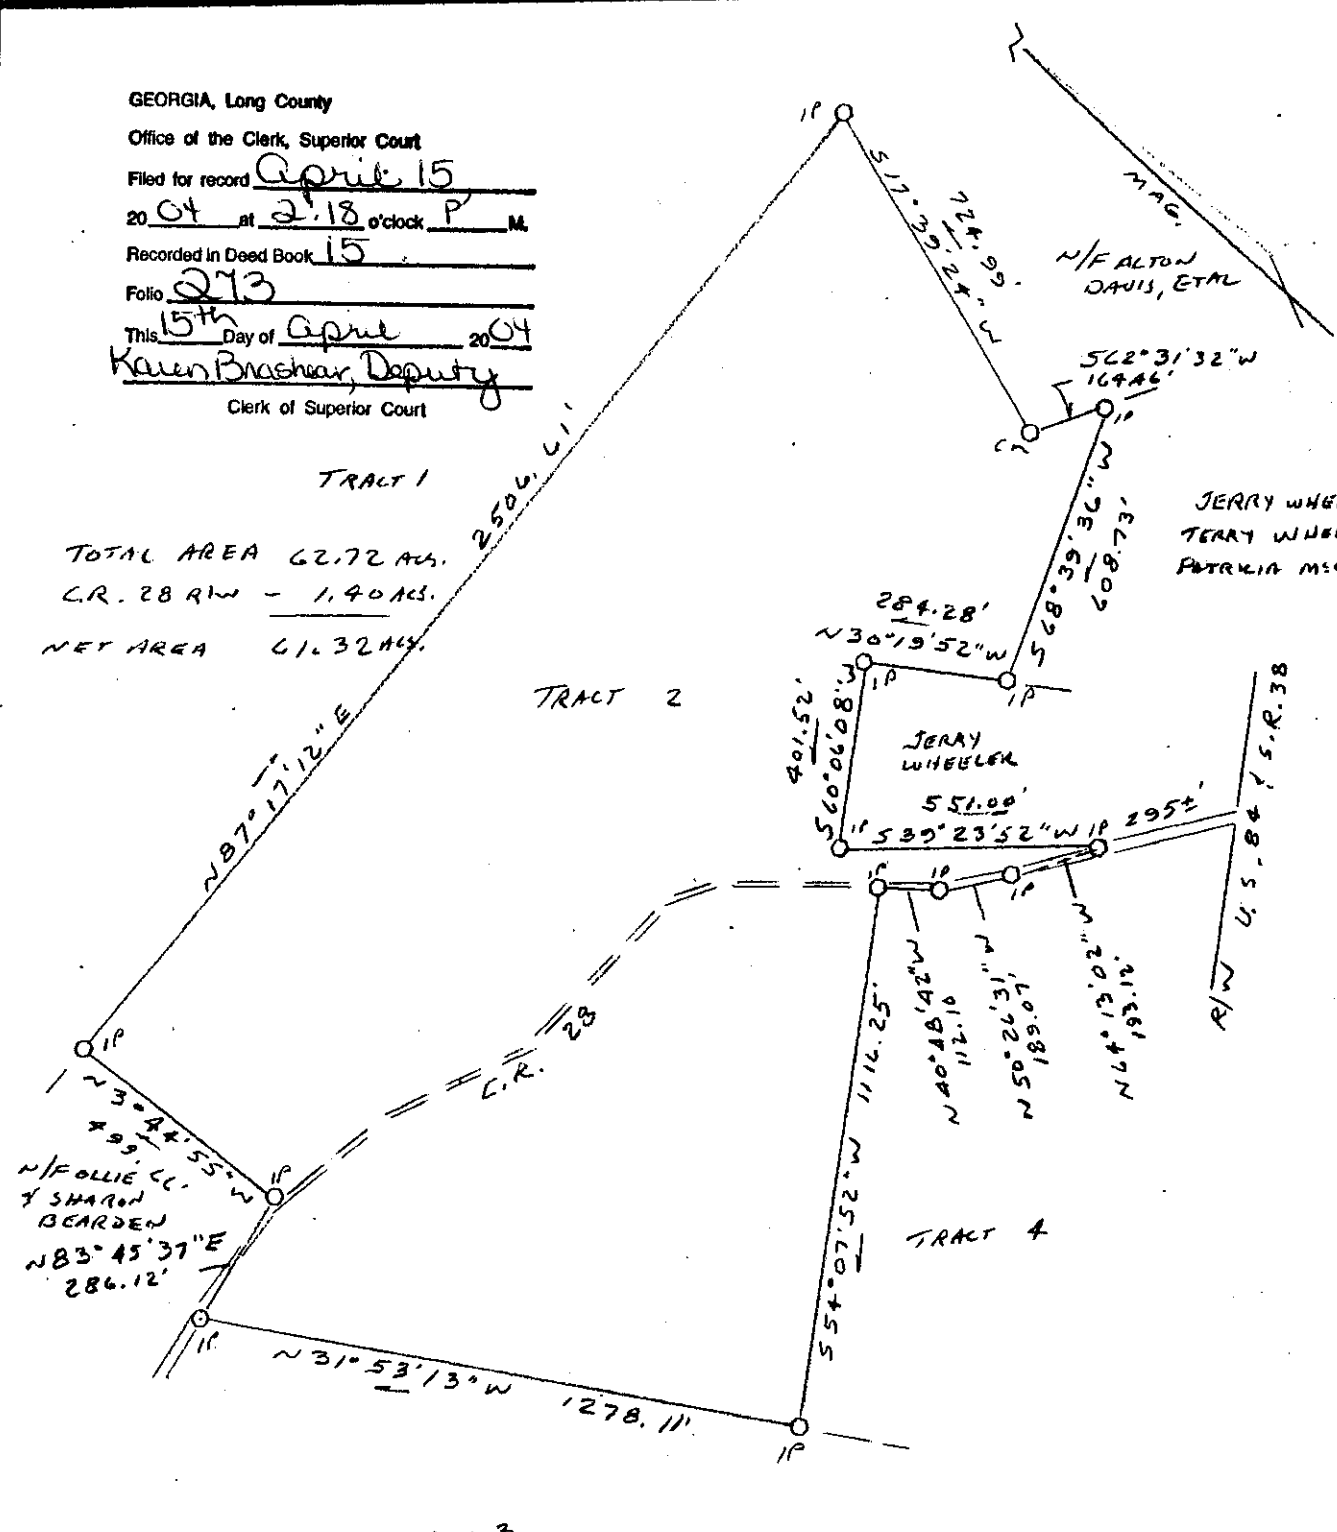 GEORGIA, Long County
Office of the Clerk, Superior Court
Filed for record April 15
20 04 at 2:18 o'clock P M.
Recorded in Deed Book 15
Folio 273
This 15th Day of April 2004
Karen Brashear, Deputy
Clerk of Superior Court
TRACT 1
TOTAL AREA 62.72 ACS.
C.R. 28 R/W - 1.40 ACS.
NET AREA 61.32 ACS.
IP
S17°39'24"W
724.99'
MAG.
N/F ALTON
DAVIS, ETAL
S62°31'32"W
164.46'
IP
S68°39'36"W
608.73'
JERRY WHE
TERRY WHE
PATRICIA
2506.61'
N87°17'12"E
284.28'
N30°19'52"W
IP
IP
TRACT 2
401.52'
S60°06'08"W
JERRY
WHEELER
551.00'
IP S39°23'52"W IP
295±'
R/W U.S. 84 & S.R. 38
IP
IP
IP
N40°48'42"W
112.10
N50°26'31"W
189.07'
N64°13'02"W
193.12'
C.R. 28
S54°07'52"W 1116.25'
IP
N3°44'55"W
N/F OLLIE
& SHARON
BEARDEN
IP
N83°45'37"E
286.12'
IP
N31°53'13"W 1278.11'
IP
TRACT 4